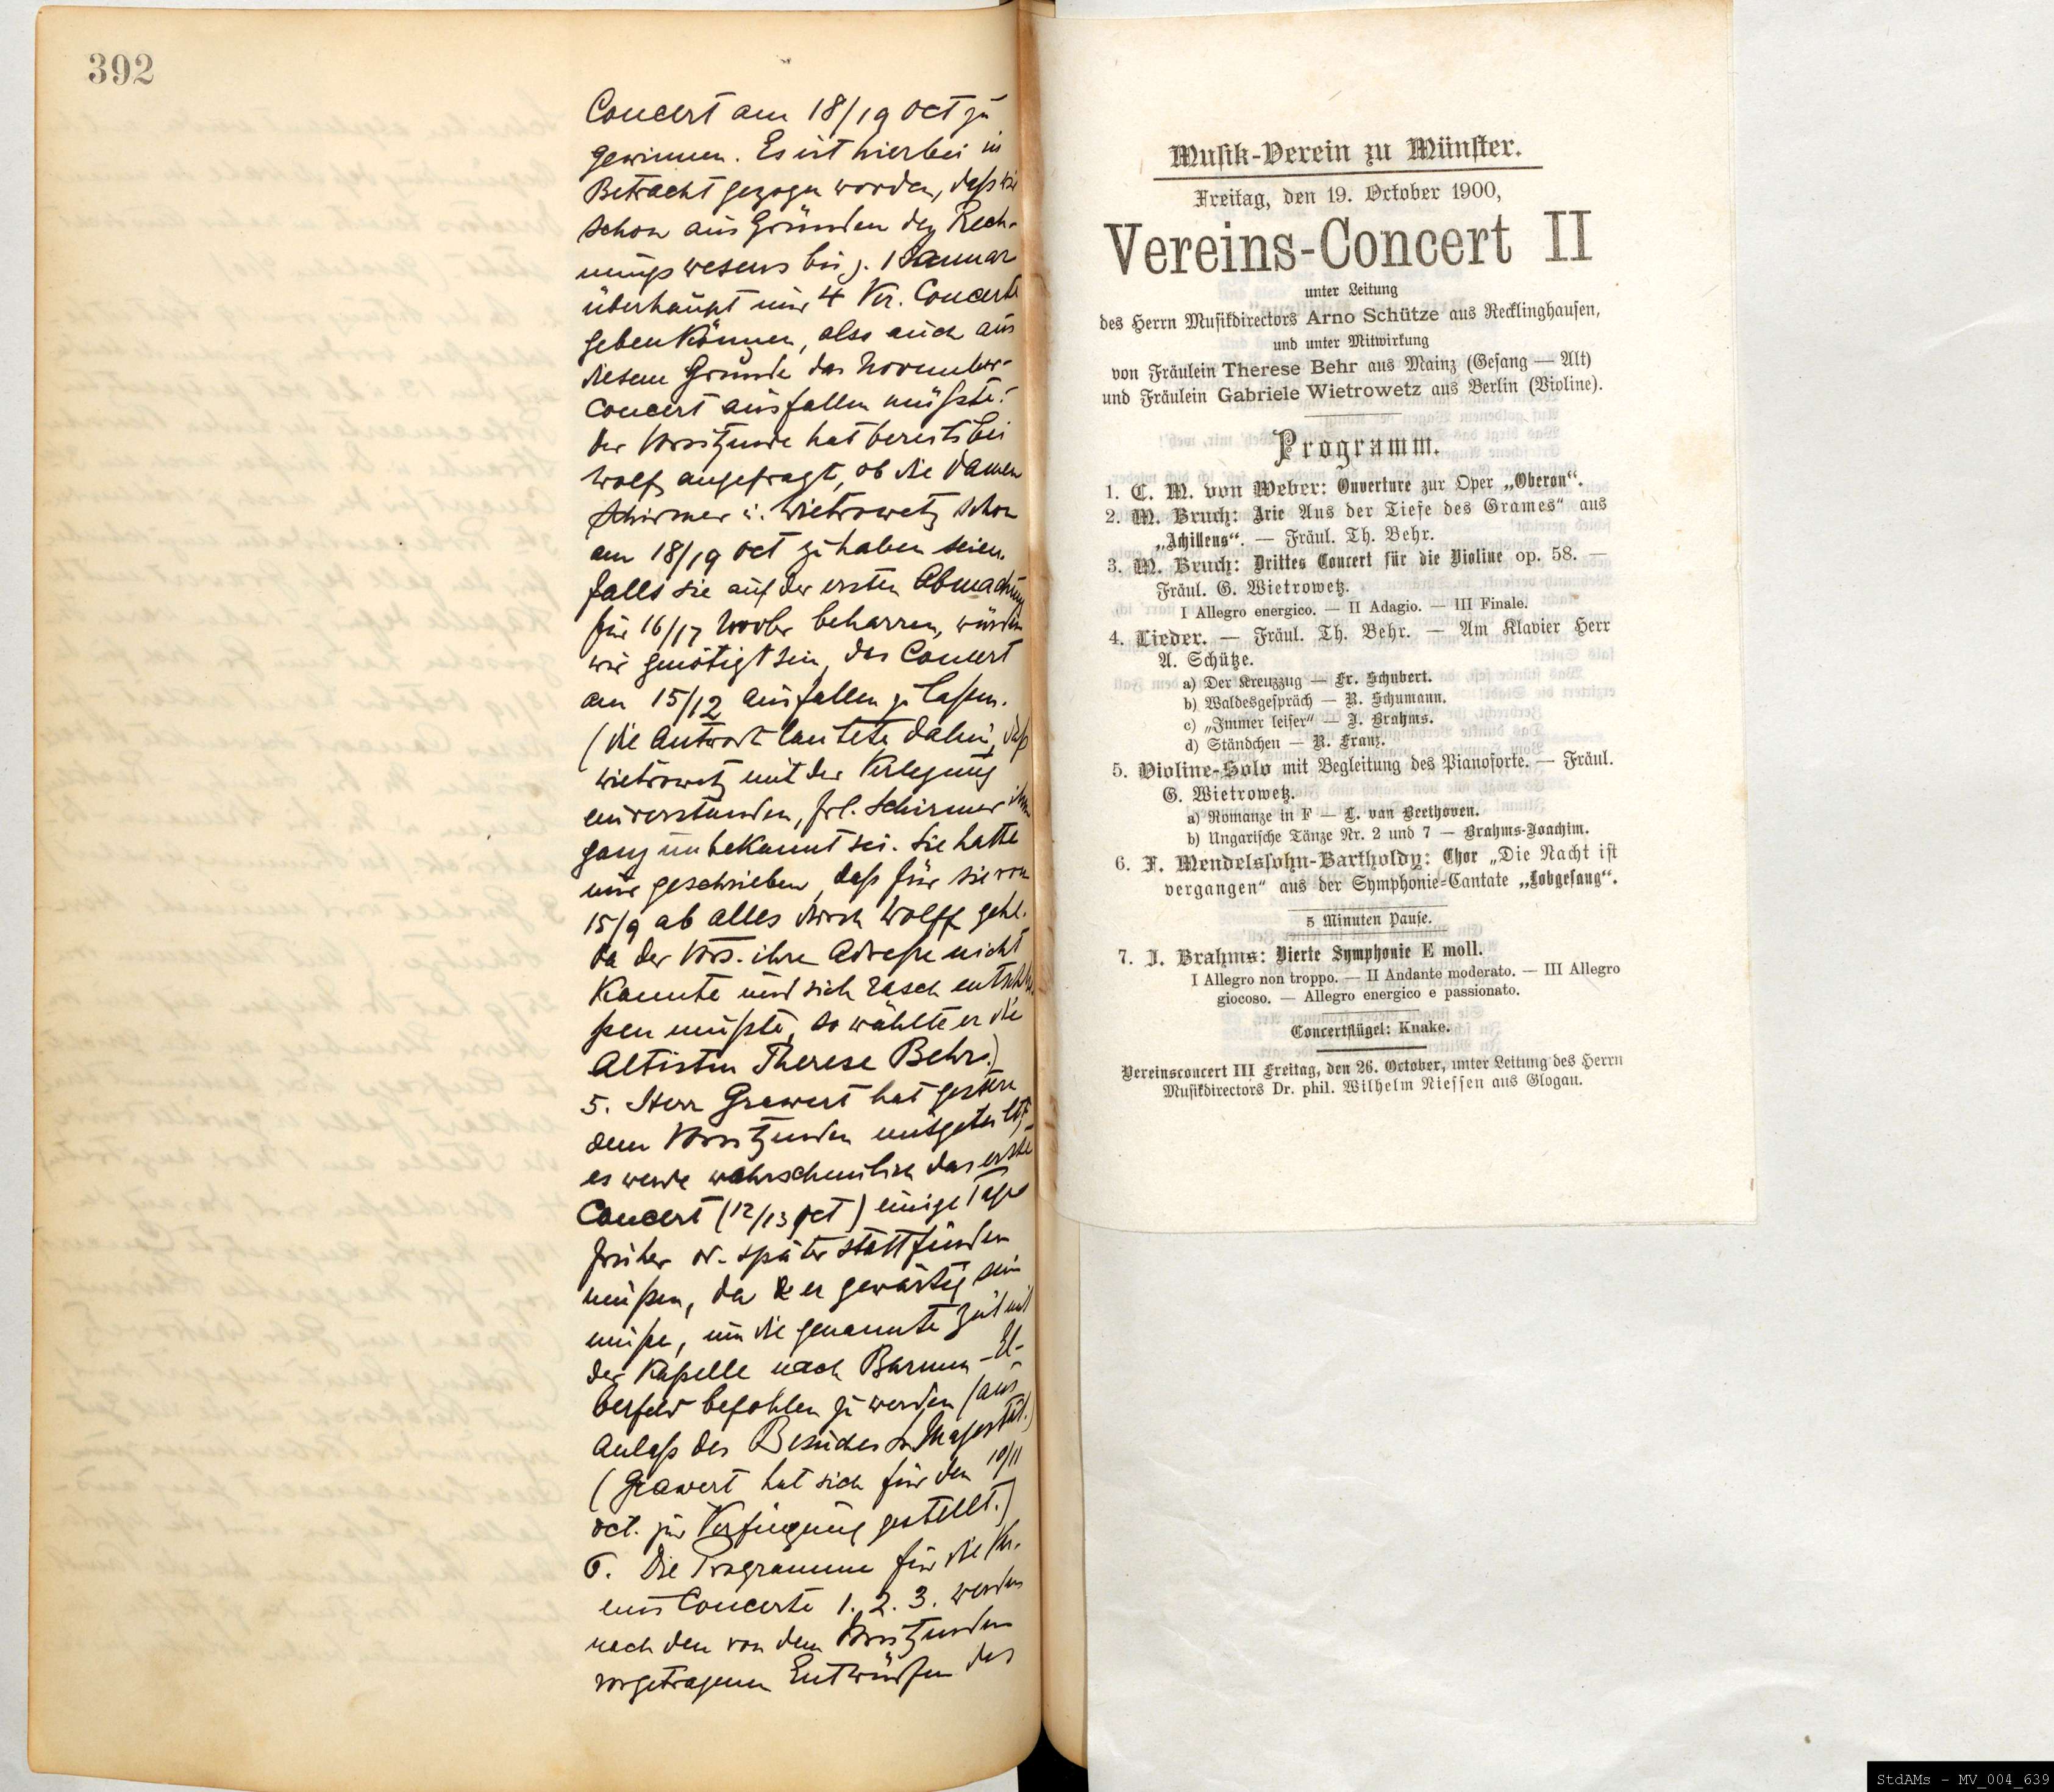 392
Concert am 18/19 Oct zu
gewinnen. Es ist hierbei in
Betracht gezogen worden, daß wir
schon aus Gründen des Rech-
nungswesens bis z. 1 Januar
überhaupt nur 4 Ver. Concerte
geben können, also auch aus
diesem Grunde das November-
concert ausfallen müßte.
Der Vorsitzende hat bereits bei
Wolff angefragt, ob die Damen
Schirmer u. Wietrowetz schon
am 18/19 Oct zu haben seien.
Falls sie auf der ersten Abmachung
für 16/17 Novbr beharren, würden
wir genötigt sein, das Concert
am 15/12 ausfallen zu laßen.
(Die Antwort lautete dahin, daß
Wietrowetz mit der Verlegung
einverstanden, Frl. Schirmer ihm
ganz unbekannt sei. Sie hatte
mir geschrieben, daß für sie von
15/9 ab alles durch Wolff gehe.
Da der Vors. ihre Adreße nicht
kannte und sich rasch entschlie-
ßen mußte, so wählte er die
Altistin Therese Behr.)
5. Herr Grawert hat gestern
dem Vorsitzenden mitgeteilt,
es werde wahrscheinlich das erste
Concert (12/13 Oct) einige Tage
früher od. später stattfinden
müßen, da er gewärtig sein
müße, um die genannte Zeit mit
der Kapelle nach Barmen-El-
berfeld befohlen zu werden (aus
Anlaß des Besuches Sr Majestät.)
(Grawert hat sich für den 10/11
Oct. zur Verfügung gestellt.)
6. Die Programme für die Ver-
eins Concerte 1. 2. 3. werden
nach den von dem Vorsitzenden
vorgetragenen Entwürfen des
Musik-Verein zu Münster.
Freitag, den 19. October 1900,
Vereins-Concert II
unter Leitung
des Herrn Musikdirectors Arno Schütze aus Recklinghausen,
und unter Mitwirkung
von Fräulein Therese Behr aus Mainz (Gesang — Alt)
und Fräulein Gabriele Wietrowetz aus Berlin (Violine).
Programm.
1. C. M. von Weber: Ouverture zur Oper „Oberon“.
2. M. Bruch: Arie Aus der Tiefe des Grames“ aus
„Achilleus“. — Fräul. Th. Behr.
3. M. Bruch: Drittes Concert für die Violine op. 58. —
Fräul. G. Wietrowetz.
I Allegro energico. — II Adagio. — III Finale.
4. Lieder. — Fräul. Th. Behr. — Am Klavier Herr
A. Schütze.
a) Der Kreuzzug — Fr. Schubert.
b) Waldesgespräch — R. Schumann.
c) „Immer leiser“ — J. Brahms.
d) Ständchen — R. Franz.
5. Violine-Solo mit Begleitung des Pianoforte. — Fräul.
G. Wietrowetz.
a) Romanze in F — L. van Beethoven.
b) Ungarische Tänze Nr. 2 und 7 — Brahms-Joachim.
6. F. Mendelssohn-Bartholdy: Chor „Die Nacht ist
vergangen“ aus der Symphonie-Cantate „Lobgesang“.
5 Minuten Pause.
7. J. Brahms: Vierte Symphonie E moll.
I Allegro non troppo. — II Andante moderato. — III Allegro
giocoso. — Allegro energico e passionato.
Concertflügel: Knake.
Vereinsconcert III Freitag, den 26. October, unter Leitung des Herrn
Musikdirectors Dr. phil. Wilhelm Niessen aus Glogau.
StdAMs - MV_004_639